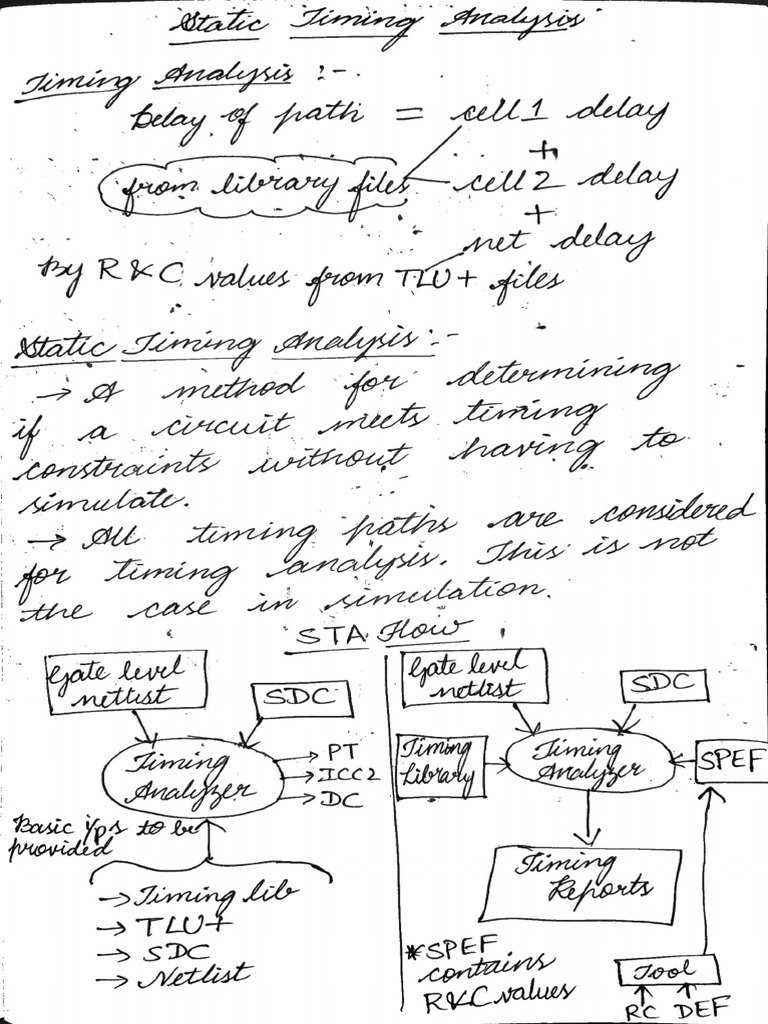 Static Timing Analysis
Timing Analysis :-
Delay of path = cell1 delay
+
from library files cell2 delay
+
net delay
By R&C values from TLU+ files
Static Timing Analysis:-
→ A method for determining
if a circuit meets timing
constraints without having to
simulate.
→ All timing paths are considered
for timing analysis. This is not
the case in simulation.
STA Flow
Gate level
netlist
SDC
Timing
Analyzer
→ PT
→ ICC2
→ DC
Basic i/ps to be
provided
→ Timing lib
→ TLU+
→ SDC
→ Netlist
Gate level
netlist
SDC
Timing
Library
Timing
Analyzer
SPEF
Timing
Reports
*SPEF
contains
R&C values
Tool
RC DEF